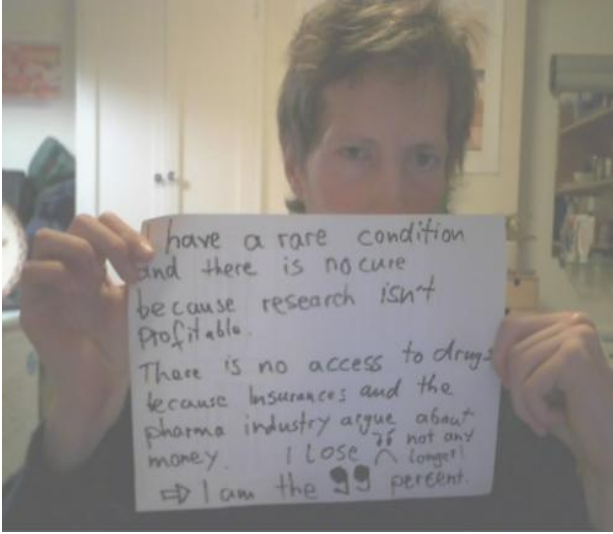 I have a rare condition
and there is no cure
because research isn't
profitable.
There is no access to drugs
because Insurances and the
pharma industry argue about
money. I lose ^ longer!
if not any
⇨ I am the 99 percent.